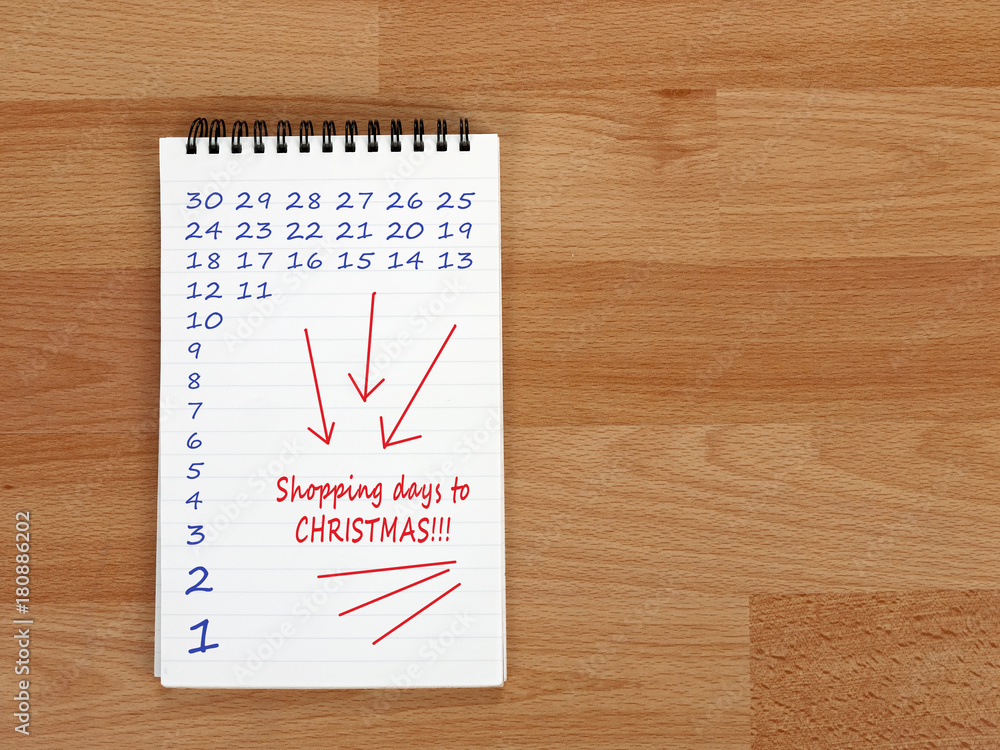 30 29 28 27 26 25
24 23 22 21 20 19
18 17 16 15 14 13
12 11
10
9
8
7
6
5
4
3
2
1
Shopping days to
CHRISTMAS!!!
Adobe Stock | #180886202